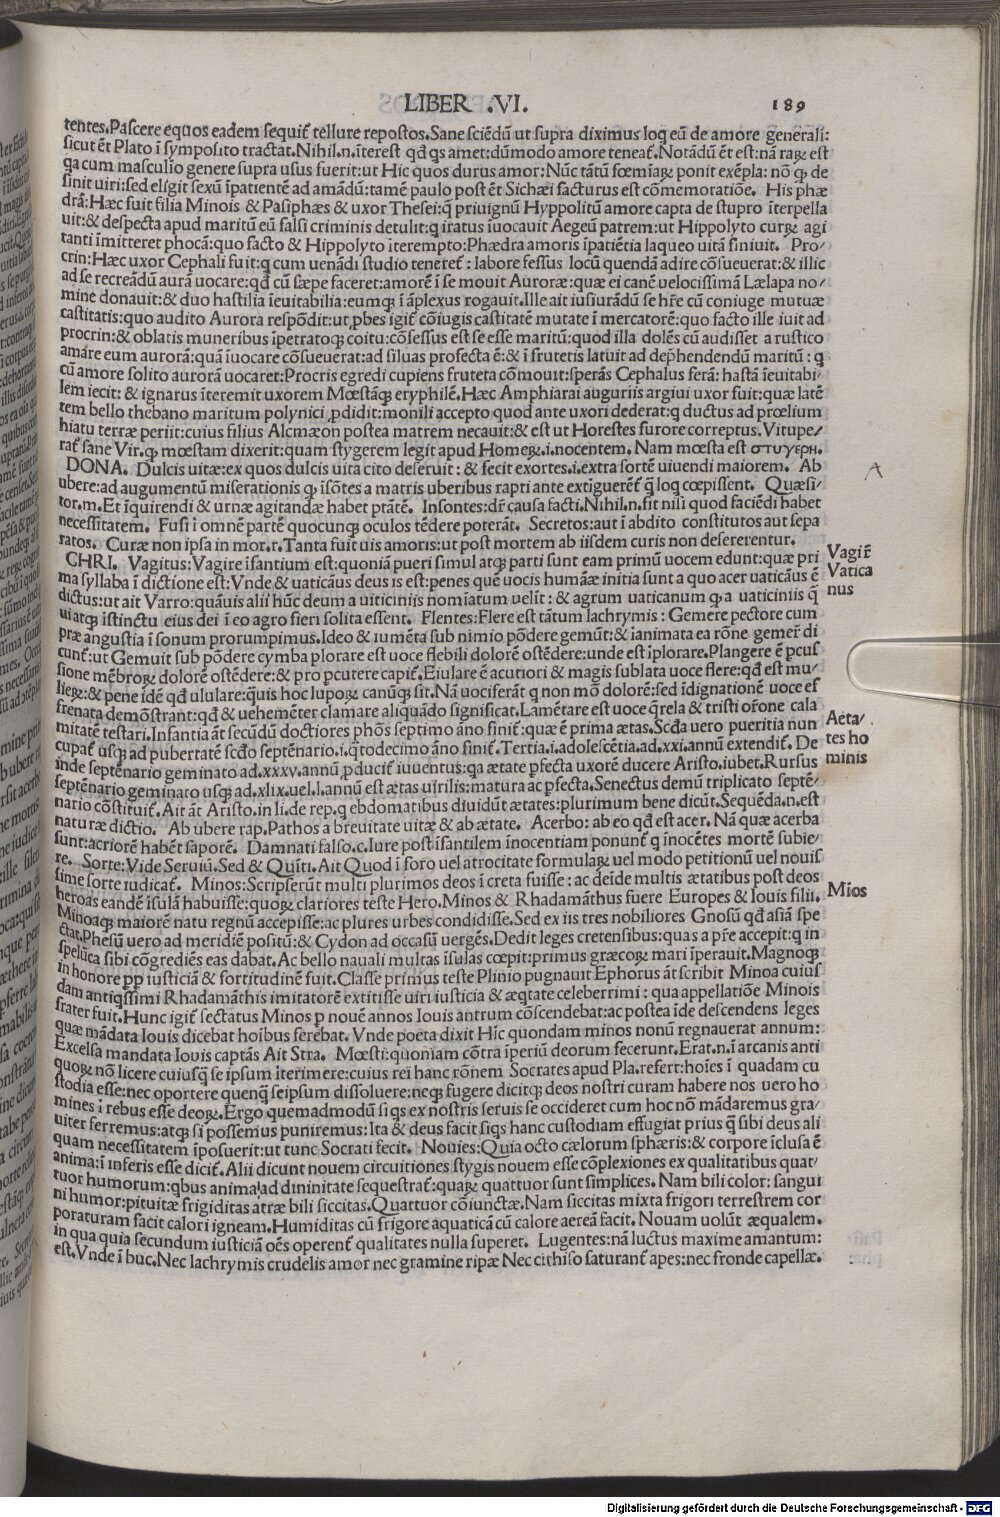 LIBER .VI. 189
tentes.Pascere equos eadem sequit̃ tellure repostos.Sane sciēdū ut supra diximus loq̃ eū de amore generali:
sicut ēt Plato ī symposito tractat.Nihil.n.īterest qđ q̃s amet:dūmodo amore teneat̃.Notādū ēt est:nā raꝝ est
q̃a cum masculīo genere supra usus fuerit:ut Hic quos durus amor:Nūc tātū fœmiaꝝ ponit exēpla: nō ꝙ de
sinit uiri:sed elīgit sexū īpatientē ad amādū:tamē paulo post ēt Sichæi facturus est cōmemoratiōe. His phæ
drā:Hæc fuit filia Minois & Pasiphæs & uxor Thesei:q̃ priuignū Hyppolitū amore capta de stupro īterpella
uit:& despecta apud maritū eū falsi criminis detulit:q̃ iratus īuocauit Aegeū patrem:ut Hippolyto curꝝ agi
tanti īmitteret phocā:quo facto & Hippolyto īterempto:Phædra amoris īpatiētia laqueo uitā finiuit. Pro/
crin:Hæc uxor Cephali fuit:q̃ cum uenādi studio teneret̃ : labore fessus locū quendā adire cōsueuerat:& illic
ad se recreādū aurā uocare:qđ cū sæpe faceret:amorē ī se mouit Auroræ:quæ ei canē uelocissimā Lælapa no/
mine donauit:& duo hastilia īeuitabilia:eumqꝫ ī āplexus rogauit.Ille ait iusiurādū se hr̃e cū coniuge mutuæ
castitatis:quo audito Aurora respōdit:ut ꝓbes igit̃ cōiugis castitatē mutate ī mercatorē:quo facto ille iuit ad
procrin:& oblatis muneribus īpetratoqꝫ coitu:cōfessus est se esse maritū:quod illa dolēs cū audisset a rustico
amare eum aurorā:quā īuocare cōsueuerat:ad siluas profecta ē:& ī frutetis latuit ad deprhendendū maritū : q̃
cū amore solito aurorā uocaret:Procris egredi cupiens fruteta cōmouit:sperās Cephalus ferā: hastā īeuitabi/
lem iecit: & ignarus īteremit uxorem Mœstāqꝫ eryphilē.Hæc Amphiarai auguriis argiui uxor fuit:quæ latē
tem bello thebano maritum polynici ꝓdidit:monili accepto quod ante uxori dederat:q̃ ductus ad prœlium
hiatu terræ periit:cuius filius Alcmæon postea matrem necauit:& est ut Horestes furore correptus.Vitupe/
rat̃ sane Vir.ꝙ mœstam dixerit:quam stygerem legit apud Homeꝝ.i.nocentem. Nam mœsta est στυγερη.
DONA. Dulcis uitæ:ex quos dulcis uita cito deseruit : & fecit exortes.i.extra sortē uiuendi maiorem. Ab
ubere:ad augumentū miserationis ꝙ īsōtes a matris uberibus rapti ante extīguerēt̃ q̃ loq̃ cœpissent. Quæsi/
tor.m.Et īquirendi & urnæ agitandæ habet ptātē. Insontes:dr̃ causa facti.Nihil.n.fit nili quod faciēdi habet
necessitatem. Fusi ī omnē partē quocunqꝫ oculos tēdere poterāt. Secretos:aut ī abdito constitutos aut sepa
ratos. Curæ non ipsa in mor.r.Tanta fuit uis amoris:ut post mortem ab iisdem curis non desererentur.
CHRI. Vagitus:Vagire īsantium est:quoniā pueri simul atqꝫ parti sunt eam primū uocem edunt:quæ pri
ma syllaba ī dictione est:Vnde & uaticāus deus is est:penes quē uocis humāæ initia sunt a quo acer uaticāus ē
dictus:ut ait Varro:quāuis alii hūc deum a uiticiniis nomīatum uelīt : & agrum uaticanum ꝙ a uaticiniis q̃
ui atqꝫ īstīnctu eius dei ī eo agro fieri solita essent. Flentes:Flere est tātum lachrymis : Gemere pectore cum
præ angustia ī sonum prorumpimus.Ideo & iumēta sub nimio pōdere gemūt:& īanimata ea rōne gemer̃ di
cunt̃:ut Gemuit sub pōdere cymba plorare est uoce flebili dolorē ostēdere:unde est īplorare.Plangere ē pcus
sione mēbroꝝ dolorē ostēdere:& pro pcutere capit̃.Eiulare ē acutiori & magis sublata uoce flere:qđ est mu/
lieꝝ:& pene idē qđ ululare:q̃uis hoc lupoꝝ canūqꝫ sit.Nā uociferāt̃ q non mō dolorē:sed īdignationē uoce ef
frenata demōstrant:qđ & uehemēter clamare aliquādo significat.Lamētare est uoce q̃rela & tristi or̃one cala
mitatē testari.Infantia āt secūdū doctiores phōs septimo āno finit̃:quæ ē prima ætas.Scđa uero pueritia nun
cupat̃ usqꝫ ad pubertatē scđo septēnario.i.q̃todecimo āno finit̃.Tertia.i.adolescētia.ad.xxi.annū extendit̃. De
inde septēnario geminato ad.xxxv.annū ꝓducit̃ iuuentus:qa ætate pfecta uxorē ducere Aristo.iubet.Rursus
septēnario geminato usqꝫ ad.xlix.uel.l.annū est ætas uīrilis:matura ac pfecta.Senectus demū triplicato septē/
nario cōstituit̃. Ait āt Aristo.in li.de rep.q̃ ebdomatibus diuidūt ætates:plurimum bene dicūt.Sequēda.n.est
naturæ dictio. Ab ubere rap.Pathos a breuitate uitæ & ab ætate. Acerbo: ab eo qđ est acer. Nā quæ acerba
sunt:acriorē habēt saporē. Damnati falso.c.Iure post īsantilem īnocentiam ponunt̃ q̃ īnocētes mortē subie/
re. Sorte:Vide Seruiū.Sed & Quīti.Ait Quod ī foro uel atrocitate formulaꝝ uel modo petitionū uel nouis
sime sorte iudicat̃. Minos:Scripserūt multi plurimos deos ī creta fuisse : ac deīde multis ætatibus post deos
heroas eandē īsulā habuisse:quoꝝ clariores teste Hero.Minos & Rhadamāthus fuere Europes & Iouis filii.
Minoaqꝫ maiorē natu regnū accepisse:ac plures urbes condidisse.Sed ex iis tres nobiliores Gnosū qđ asiā spe
ctat.Phesū uero ad meridiē positū:& Cydon ad occasū uergēs.Dedit leges cretensibus:quas a pr̃e accepit:q̃ in
spelūca sibi cōgrediēs eas dabat. Ac bello nauali multas īsulas cœpit:primus græcoꝝ mari īperauit.Magnoqꝫ
in honore pp iusticiā & fortitudinē fuit.Classe primus teste Plinio pugnauit Ephorus āt scribit Minoa cuius
dam antiqssimi Rhadamāthis imitatorē extitisse uiri iusticia & æqtate celeberrimi : qua appellatiōe Minois
frater fuit.Hunc igit̃ sectatus Minos p nouē annos Iouis antrum cōscendebat:ac postea īde descendens leges
quæ mādata Iouis dicebat hoībus ferebat. Vnde poeta dixit Hīc quondam minos nonū regnauerat annum:
Excelsa mandata Iouis captās Ait Stra. Mœsti:quoniam cōtra īperiū deorum fecerunt.Erat.n.ī arcanis anti
quoꝝ nō licere cuiusq̃ se ipsum īterimere:cuius rei hanc rōnem Socrates apud Pla.refert:hoīes ī quadam cu
stodia esse:nec oportere quenq̃ seipsum dissoluere:neqꝫ fugere dicitqꝫ deos nostri curam habere nos uero ho
mines ī rebus esse deoꝝ.Ergo quemadmodū si q̃s ex nostris seruis se occideret cum hoc nō mādaremus gra/
uiter ferremus:atqꝫ si possemus puniremus:Ita & deus facit siq̃s hanc custodiam effugiat prius q̃ sibi deus ali
quam necessitatem īposuerit:ut tunc Socrati fecit. Nouies:Quia octo cælorum sphæris:& corpore īclusa ē
anima:ī inferis esse dicit̃.Alii dicunt nouem circuitiones stygis nouem esse cōplexiones ex qualitatibus quat/
tuor humorum:q̃bus anima ad diuinitate sequestrat̃:quaꝝ quattuor sunt simplices. Nam bili color: sangui
ni humor:pituitæ frigiditas atræ bili siccitas.Quattuor cōiunctæ.Nam siccitas mixta frigori terrestrem cor
poraturam facit calori igneam.Humiditas cū frigore aquaticā cū calore aereā facit. Nouam uolūt æqualem.
in qua quia secundum iusticiā oēs operent̃ qualitates nulla superet. Lugentes:nā luctus maxime amantum:
est.Vnde ī buc.Nec lachrymis crudelis amor nec gramine ripæ Nec cithiso saturant̃ apes:nec fronde capellæ.
Vagir̃
Vatica
nus
Aeta/
tes ho
minis
Mios
Digitalisierung gefördert durch die Deutsche Forschungsgemeinschaft - DFG